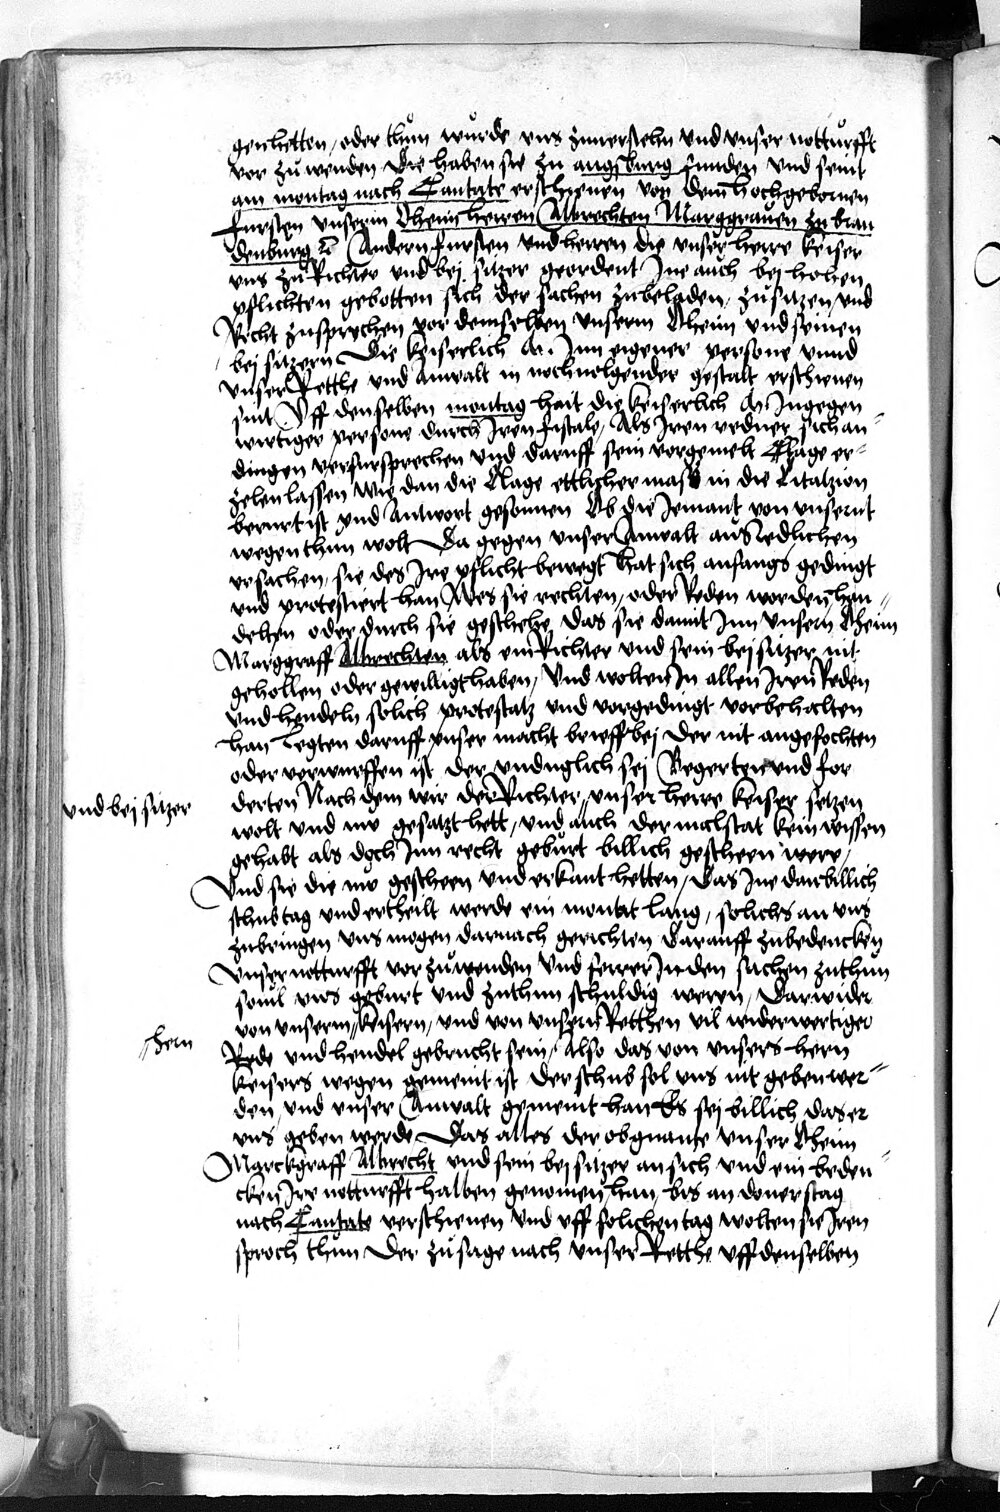 gericketten, oder thun wurde uns zuuersteen und unser notturfft
vor zu wenden Die haben sie zu augspurg funden und seint
am montag nach Cantate erschienen von dem hochgebornen
fursten unserm Oheim herren Albrechten Marggrauen zu bran
denburg etc Andern fursten und herren die unser herre keiser
uns zu Richter und bei sitzer geordent Ine auch bei hohen
pflichten gebotten sich der sachen zubeladen, zu sitzen und
Recht zusprechen vor demselben unserm Oheim und seinen
bei sitzern Die keiserlich M. Inn eigener persone unnd
unser Rethe und Anwalt in nochuolgender gestalt erschienen
sint Uff denselben montag hait die keiserlich M Ingegen
wirtiger persone durch Iren fiscale, Als Iren redner sich an
dingen versursprechen und daruff sein vorgemelt Clage er
zelen lassen wie dan die Clage ettlicher mass in die Citatzion
berurt ist und Antwort gesonnen Ob die Iemant von unsernt
wegen thun wolt Da gegen unser Anwalt aus redlichen
ursachen, sie des Ire pflicht bewegt hat sich anfangs gedingt
und protestiert han Wes sie rechten, oder Reden worden han
delten oder durch sie geschehe Das sie damit Inn unsern Oheim
Marggraff Albrechten als ein Richter und sein beisitzer nit
gehollen oder gewilligt haben, Und wolten In allen Iren Reden
und hendeln solich protestatz und vorgedingt vorbehalten
han Legten daruff unser macht brieff bei Der nit angefochten
oder verworffen ist der unduglich sei Begerten und for
derten Nach dem wir der Richter unser herre keiser setzen
und bei sitzer
wolt und nu gesatzt hett, und auch der malstat kein wissen
gehabt als doch Inn recht geburt billich gescheen were,
Und sie die nu gescheen und erkant hetten, Das Ine dan billich
schub tag und ertheilt werde ein montat lang, solichs an uns
zubringen uns mogen darnach gerichten Darauff zubedencken
unser notturfft vor zu wenden Und ferrer In den sachen zuthun
souil uns geburt und zuthun schuldig weren, Darwider
von unserm keisern, und von unsern Retthen vil widerwertiger
hern
Rede und hendel gebrucht sein, Also das von unsers hern
keisers wegen gemeint ist der schub sol uns nit geben wer
den, und unser Anwalt gemeint han Es sei billich das er
uns geben werde Das alles der obgnante unser Oheim
Marckgraff Albrecht und sein beisitzer an sich und ein beden
cken Ire notturfft halben genomen han, bis an donerstag
nach Cantate verschienen und uff solichen tag wolten sie Iren
sproch thun Der zu sage nach unser Retthe uff denselben